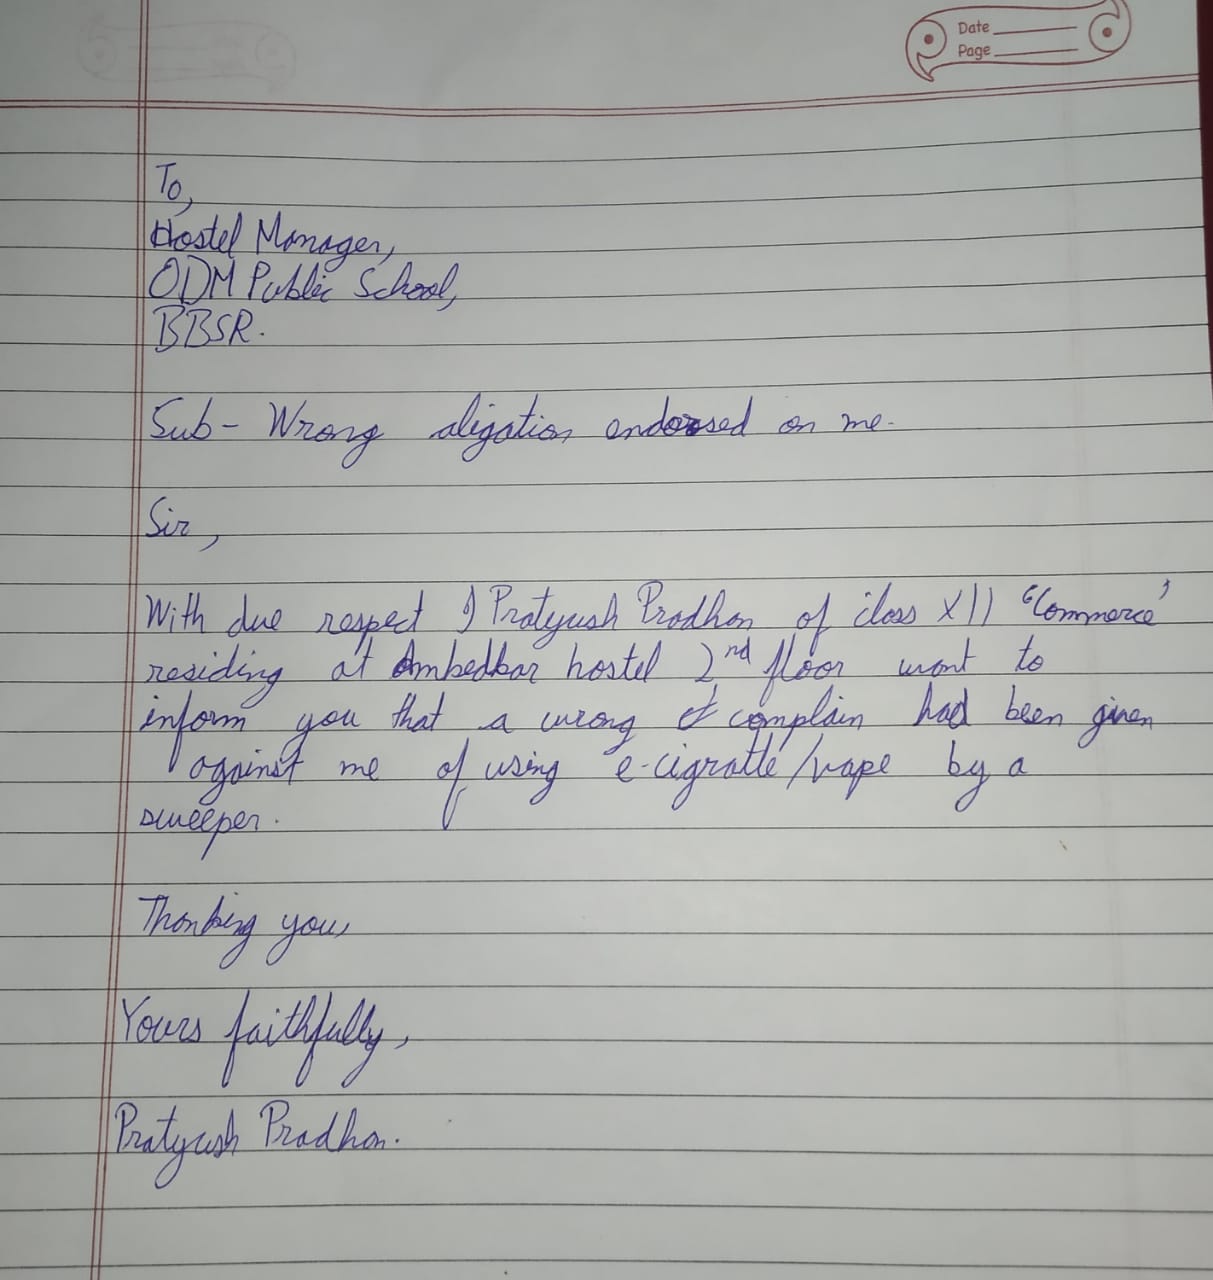 Date
Page
To,
Hostel Manager,
ODM Public School,
BBSR.
Sub- Wrong aligation endorsed on me.
Sir,
With due respect I Pratyush Pradhan of class XII 'Commerce'
residing at Ambedkar hostel 2nd floor want to
inform you that a wrong complain had been given
against me of using e-cigratte/vape by a
sweeper.
Thanking you,
Yours faithfully,
Pratyush Pradhan.